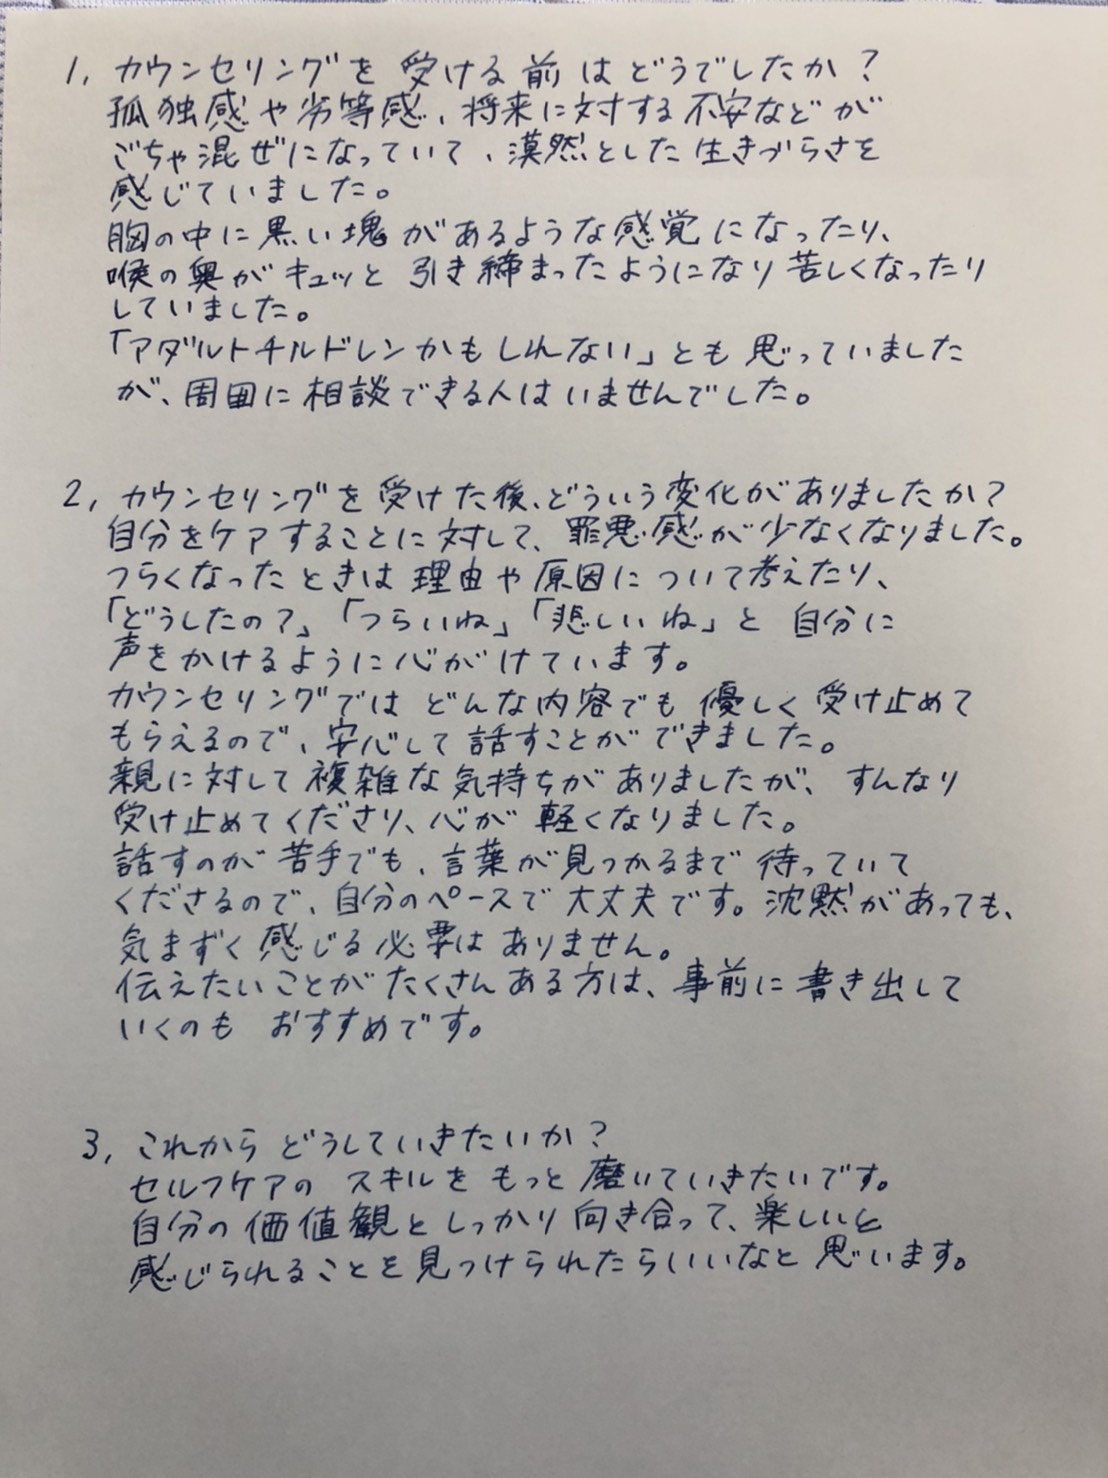 1, カウンセリングを受ける前はどうでしたか?
孤独感や劣等感、将来に対する不安などが
ごちゃ混ぜになっていて、漠然とした生きづらさを
感じていました。
胸の中に黒い塊があるような感覚になったり、
喉の奥がキュッと引き締まったようになり苦しくなったり
していました。
「アダルトチルドレンかもしれない」とも思っていました
が、周囲に相談できる人はいませんでした。
2, カウンセリングを受けた後、どういう変化がありましたか?
自分をケアすることに対して、罪悪感が少なくなりました。
つらくなったときは理由や原因について考えたり、
「どうしたの?」「つらいね」「悲しいね」と自分に
声をかけるように心がけています。
カウンセリングではどんな内容でも優しく受け止めて
もらえるので、安心して話すことができました。
親に対して複雑な気持ちがありましたが、すんなり
受け止めてくださり、心が軽くなりました。
話すのが苦手でも、言葉が見つかるまで待っていて
くださるので、自分のペースで大丈夫です。沈黙があっても、
気まずく感じる必要はありません。
伝えたいことがたくさんある方は、事前に書き出して
いくのもおすすめです。
3, これからどうしていきたいか?
セルフケアのスキルをもっと磨いていきたいです。
自分の価値観としっかり向き合って、楽しいと
感じられることを見つけられたらいいなと思います。